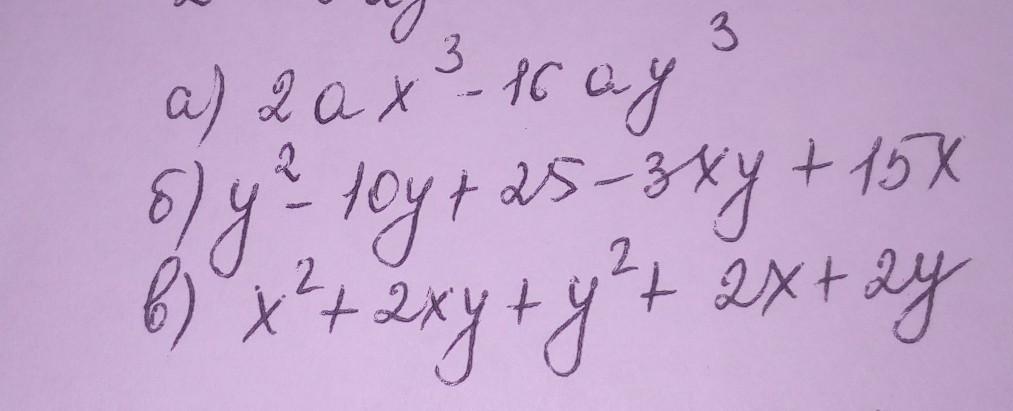 а) 2ax³ - 16ay³
б) y² - 10y + 25 - 3xy + 15x
в) x² + 2xy + y² + 2x + 2y